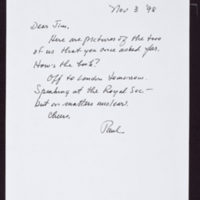 Nov 3 '98
Dear Jim,
Here are pictures of the two
of us that you once asked for.
How's the book?
Off to London tomorrow.
Speaking at the Royal Soc—
but on matters nuclear.
Cheers,
Paul